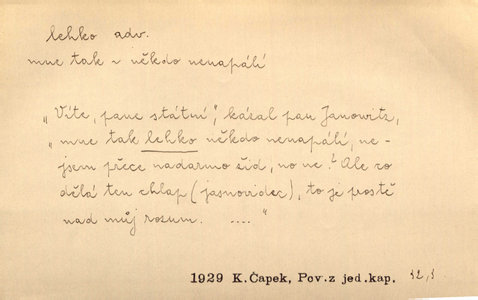 lehko adv.
mne tak ~ někdo nenapálí
„Víte, pane státní", kázal pan Janowitz,
„mne tak lehko někdo nenapálí, ne-
jsem přece nadarmo žid, no ne? Ale co
dělá ten chlap (jasnovidec), to je prostě
nad můj rozum. ...."
1929 K.Čapek, Pov.z jed.kap.